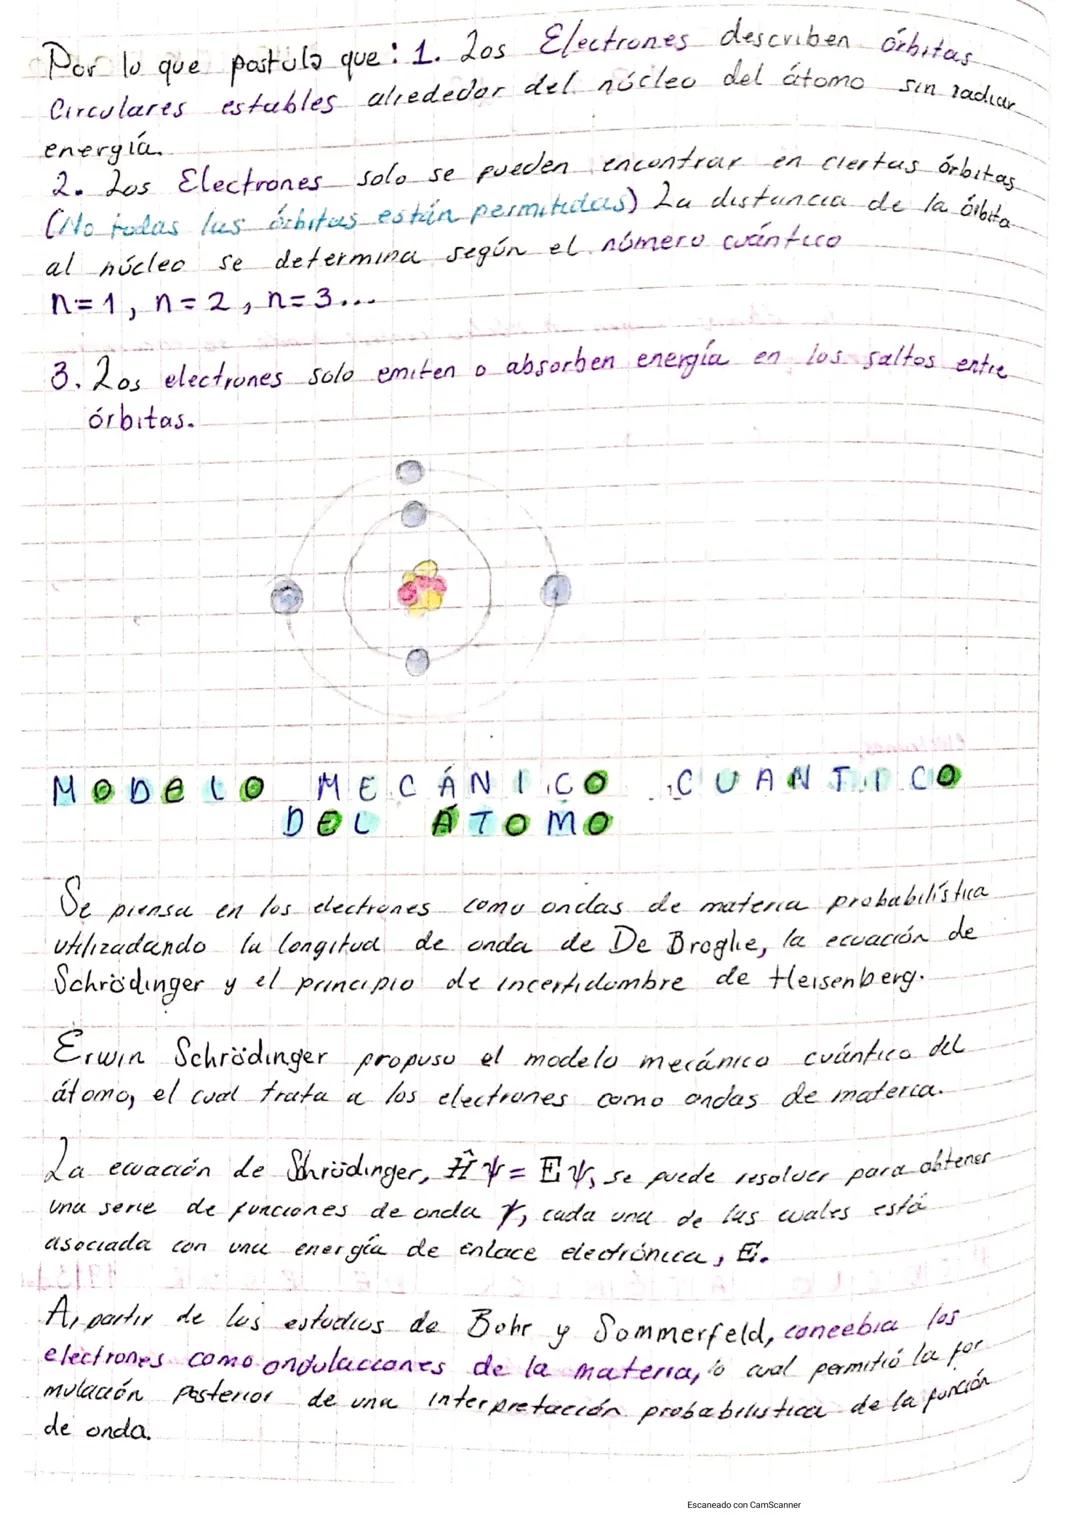 Por lo que postula que: 1. Los Electrones describen órbitas
Circulares estables alrededor del núcleo del átomo sin radiar
energía.
2. Los Electrones solo se pueden encontrar en ciertas órbitas
(No todas las órbitas están permitidas) La distancia de la órbita
al núcleo se determina según el número cuántico
n=1, n=2, n=3...
3. Los electrones solo emiten o absorben energía en los saltos entre
órbitas.
MODELO MECÁNICO CUANTICO
DEL ÁTOMO
Se piensa en los electrones como ondas de materia probabilística
utilizadando la longitud de onda de De Broglie, la ecuación de
Schrödinger y el principio de incertidumbre de Heisenberg.
Erwin Schrödinger propuso el modelo mecánico cuántico del
átomo, el cual trata a los electrones como ondas de materia.
La ecuación de Shrödinger, Ĥψ = Eψ, se puede resolver para obtener
una serie de funciones de onda ψ, cada una de las cuales está
asociada con una energía de enlace electrónica, E.
A partir de los estudios de Bohr y Sommerfeld, concebia los
electrones como ondulaciones de la materia, lo cual permitió la for
mulación Posterior de una interpretación probabilistica de la función
de onda.
Escaneado con CamScanner